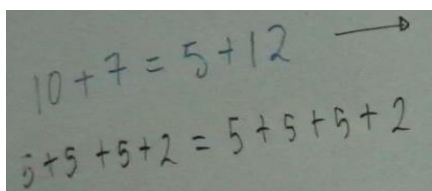 10 + 7 = 5 + 12 →
5 + 5 + 5 + 2 = 5 + 5 + 5 + 2